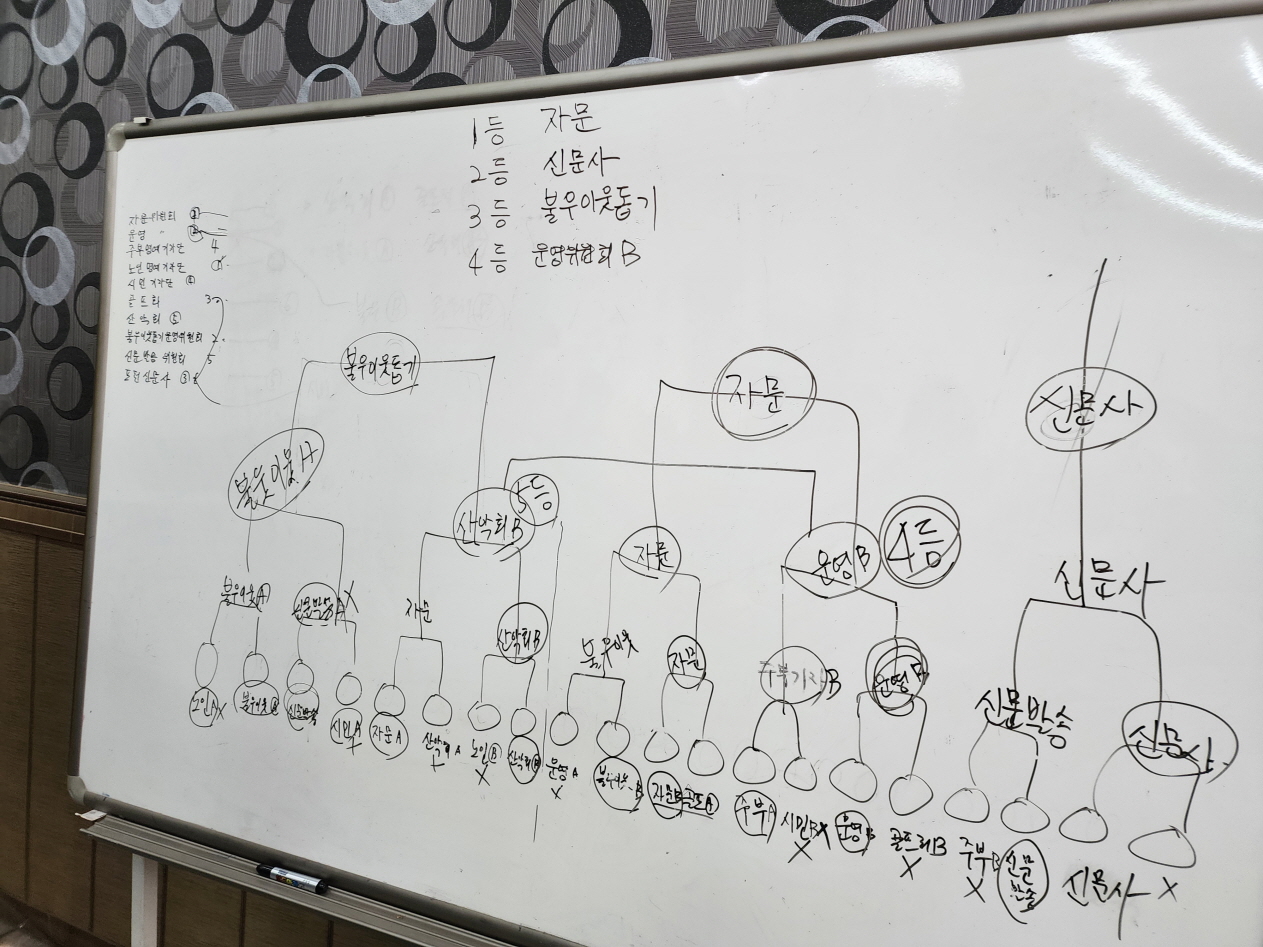 1등 자문
2등 신문사
3등 불우이웃돕기
4등 운영위원회 B
자문위원회 ②
운영 〃
주부명예기자단 4
노인명예기자단
시민기자단 ④
골프회 3
산악회 ⑤
불우이웃돕기운영위원회 2
신문발송위원회 5
신문사 ③
불우이웃돕기
자문
신문사
불우이웃 A
산악회 B
5등
자문
운영 B
4등
신문사
불우이웃 A
신문발송 A X
자문
산악회 B
불우이웃
자문
주부기자 B
운영 B
신문발송
신문사
노인 A X
불우이웃 A
신문발송
시민 A
자문 A
산악회 A
노인 B X
산악회 B
운영 A X
불우이웃 B
자문 B
골프 A
주부 A
시민 B X
운영 B
골프회 B X
주부 B X
신문발송
신문사
X